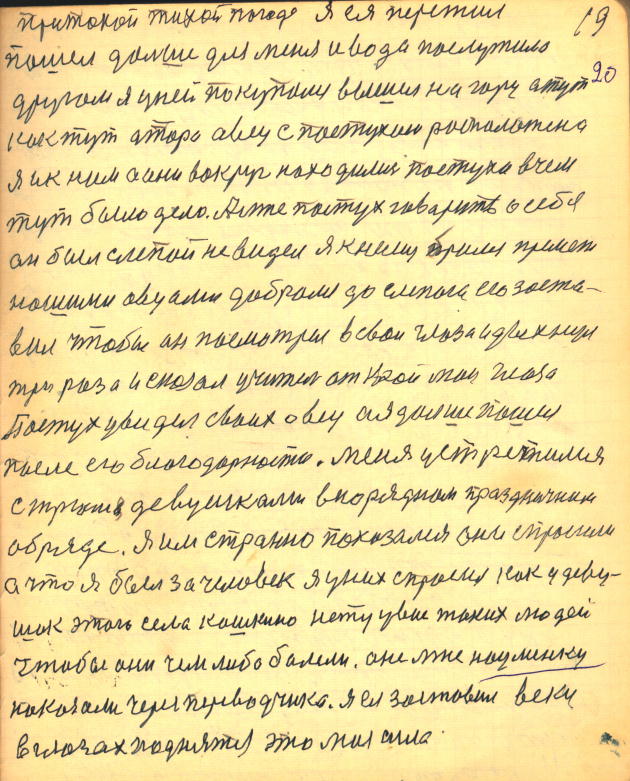 притокой тихой погоде Я ся пережил 19
пошел дольше для меня и вода послужило 20
другом я у ней покупался вышел на гору а тут
как тут отара овец с пастухом расположена
я и к ним а они вокруг находились пастуха в чем
тут было дело. А мне пастух говарить о себя
он был слепой не видел я к нему прошел
нашими овцами добрался до слепога его заста-
вил чтобы он посмотрел в свои глаза и двехнул
три раза и сказал учител открой мои глаза
Пастух увидел своих овец а я дальше пошел
после его благодарности. меня устретился
с тремя девушками в порядном праздничном
обряде. Я им странно показался они спросили
а что я был за человек я у них спросил как у деву-
шок этого села кошкино нету увас таких людей
Чтобы они чем либо болели. оне мне на уменку
показали через переводчика. я ея заставил веки
в глазах поднятся это моя сила